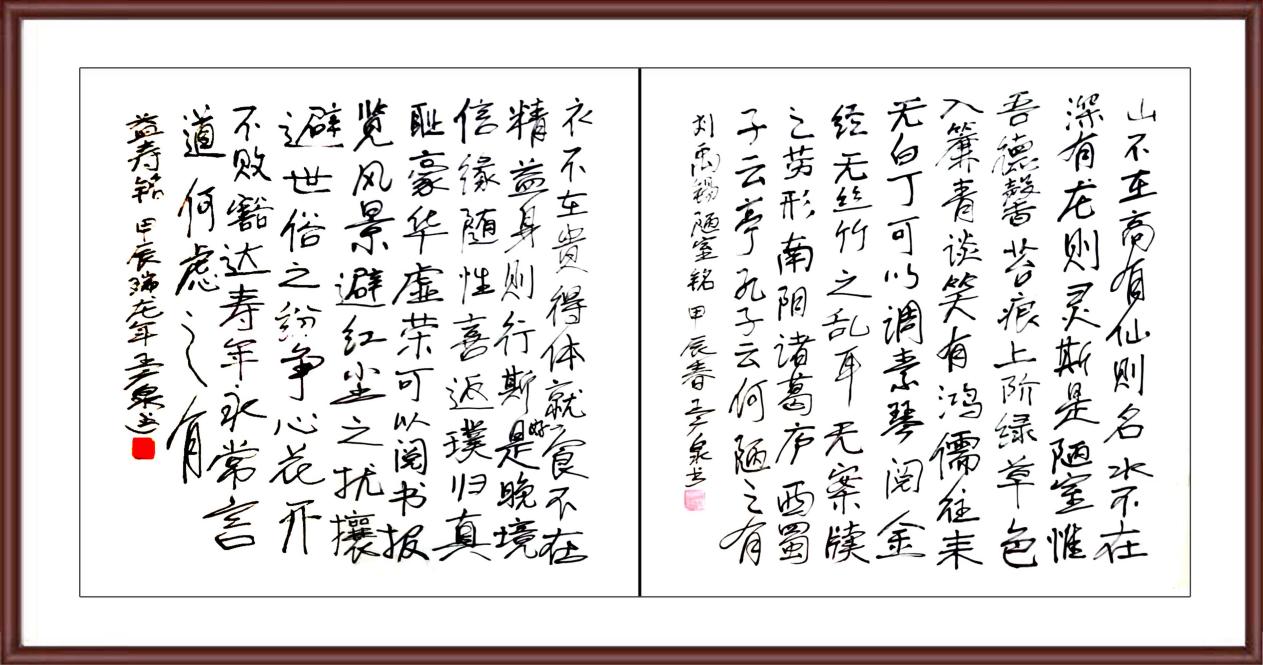 山不在高有仙则名水不在
深有龙则灵斯是陋室惟
吾德馨苔痕上阶绿草色
入簾青谈笑有鸿儒往来
无白丁可以调素琴阅金
经无丝竹之乱耳无案牍
之劳形南阳诸葛庐西蜀
子云亭孔子云何陋之有
刘禹锡陋室铭 甲辰春 泉书
衣不在贵得体就好食不在
精益身则行斯是晚境
信缘随性喜返璞归真
耻豪华虚荣可以阅书报
览风景避红尘之扰攘
避世俗之纷争心花开
不败豁达寿年永常言
道何虑之有
益寿铭 甲辰瑞龙年 泉书